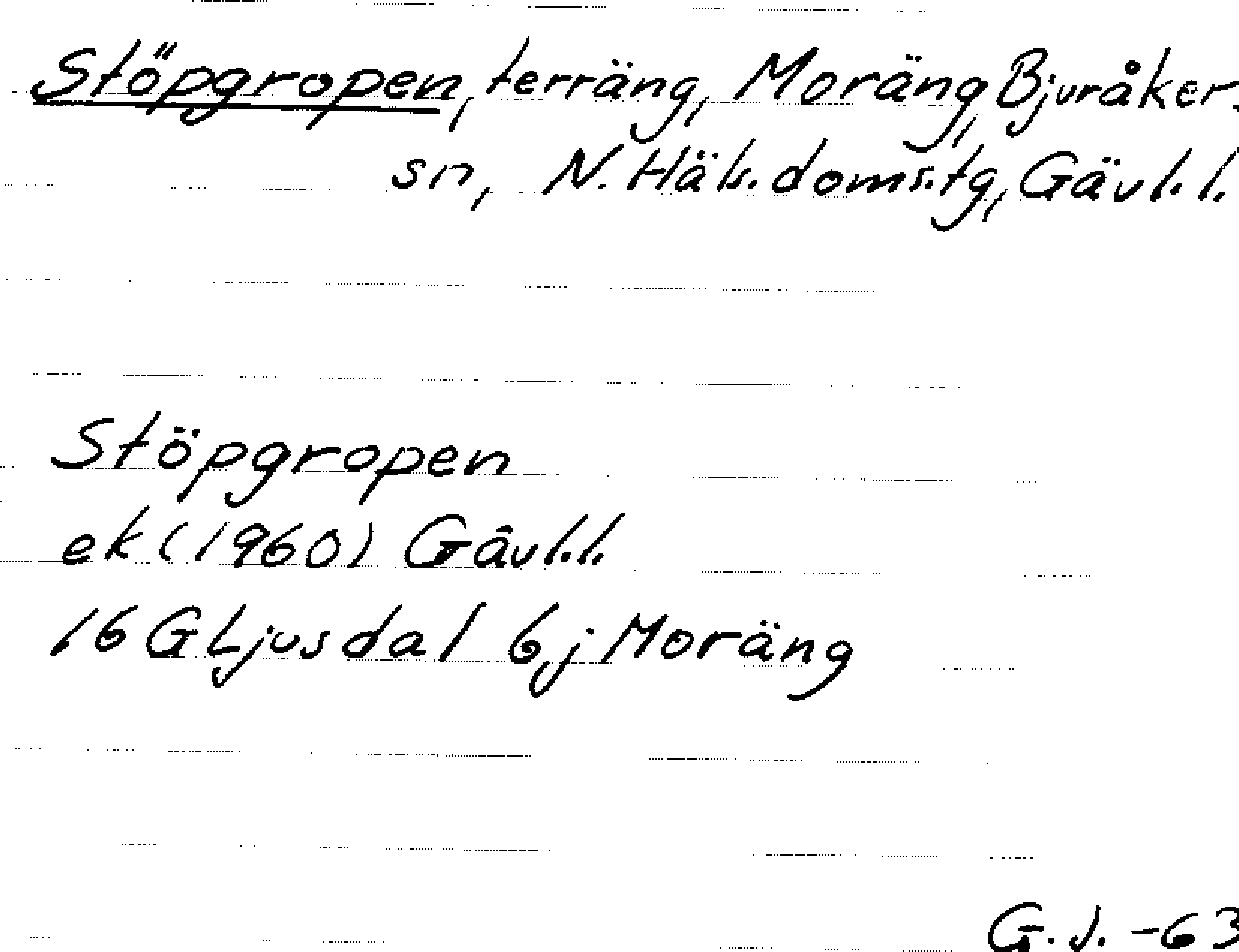 Stöpgropen, terräng, Moräng, Bjuråkers
sn, N. Häls. doms.tg, Gävl.l.
Stöpgropen
ek (1960) Gävl.l.
16 G Ljusdal 6 j Moräng
G.J. -63